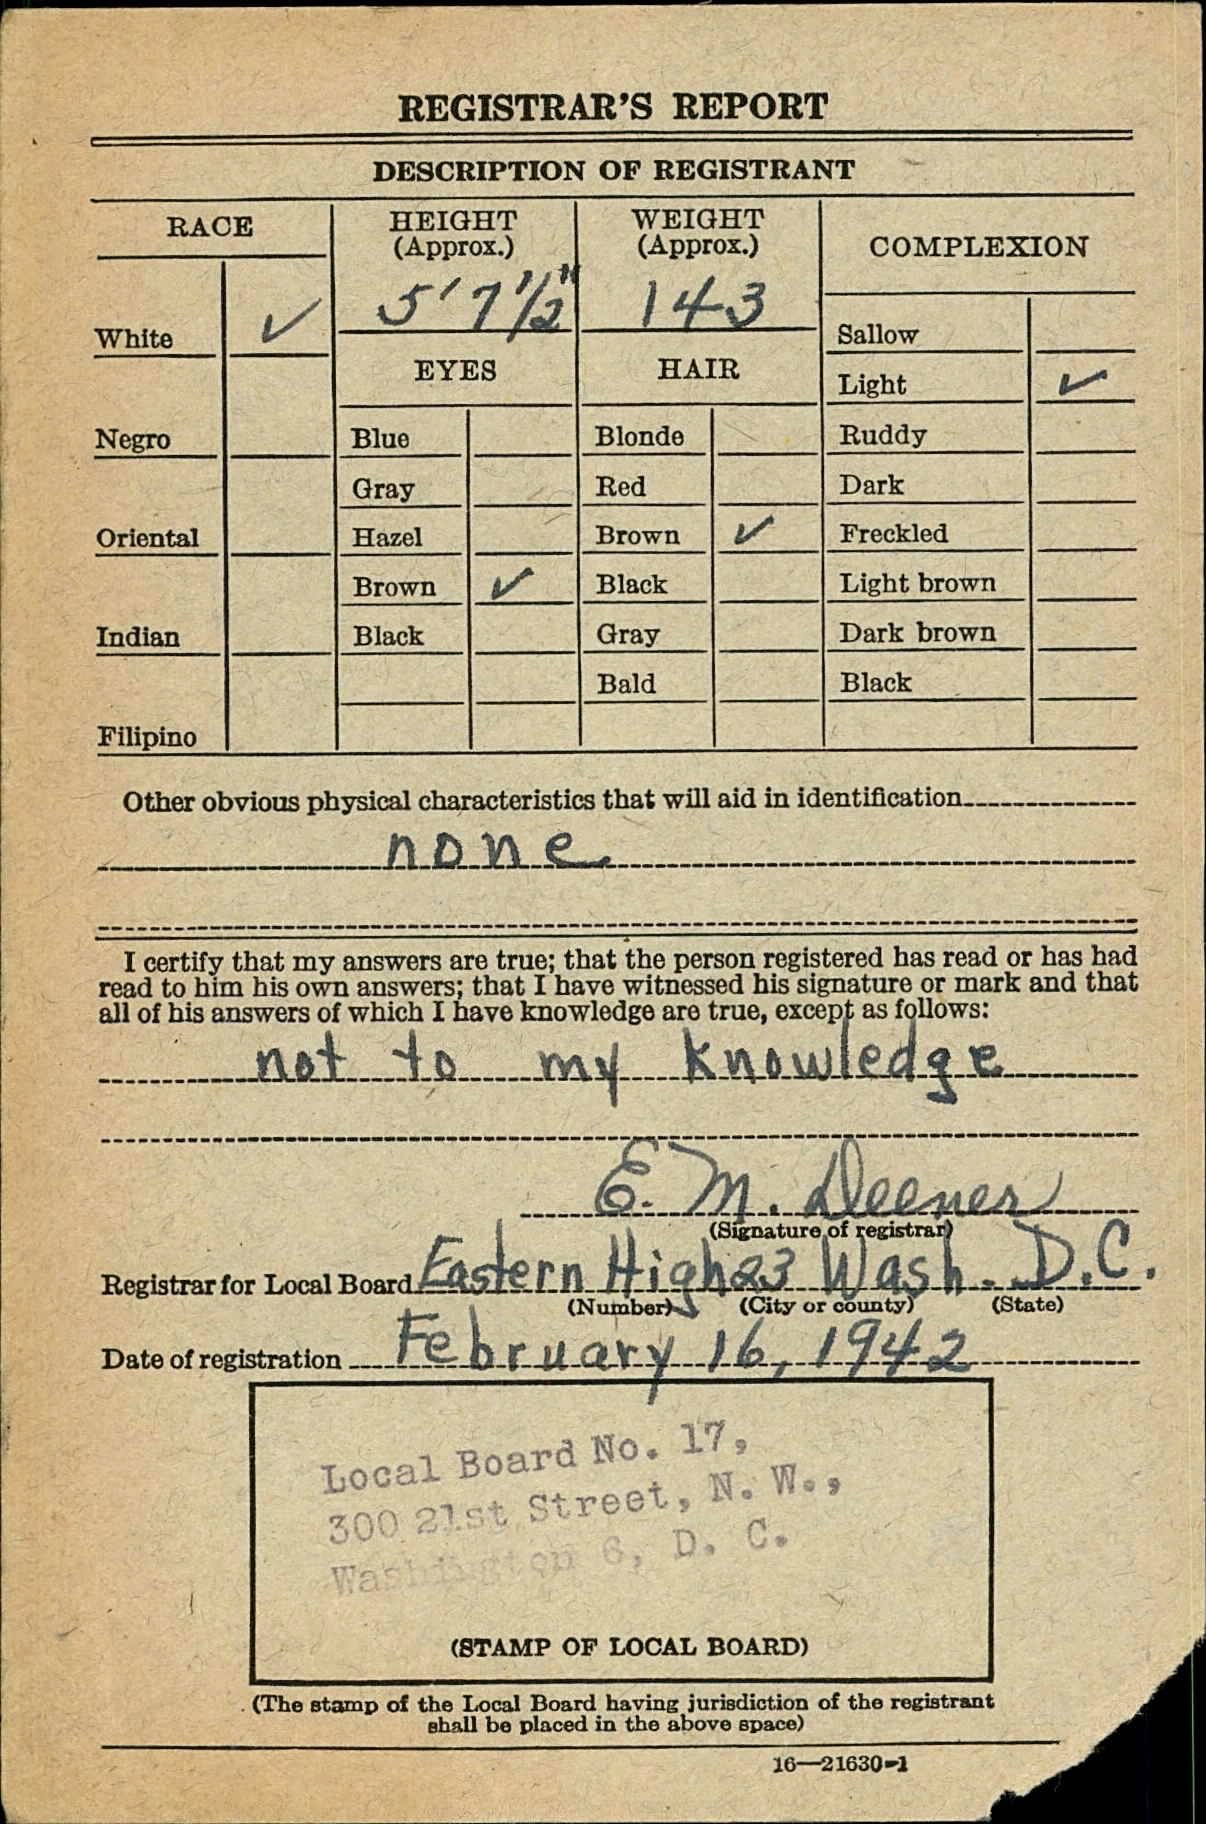 REGISTRAR'S REPORT
DESCRIPTION OF REGISTRANT
RACE
HEIGHT
(Approx.)
WEIGHT
(Approx.)
COMPLEXION
5' 7 1/2"
143
White ✓
Sallow
EYES
HAIR
Light ✓
Negro
Blue
Blonde
Ruddy
Gray
Red
Dark
Oriental
Hazel
Brown ✓
Freckled
Brown ✓
Black
Light brown
Indian
Black
Gray
Dark brown
Bald
Black
Filipino
Other obvious physical characteristics that will aid in identification
none
I certify that my answers are true; that the person registered has read or has had
read to him his own answers; that I have witnessed his signature or mark and that
all of his answers of which I have knowledge are true, except as follows:
not to my knowledge
E. M. Deener
(Signature of registrar)
Registrar for Local Board Eastern High 23 Wash. D.C.
(Number) (City or county) (State)
Date of registration February 16, 1942
Local Board No. 17,
300 21st Street, N. W.,
Washington 6, D. C.
(STAMP OF LOCAL BOARD)
(The stamp of the Local Board having jurisdiction of the registrant
shall be placed in the above space)
16—21630-1